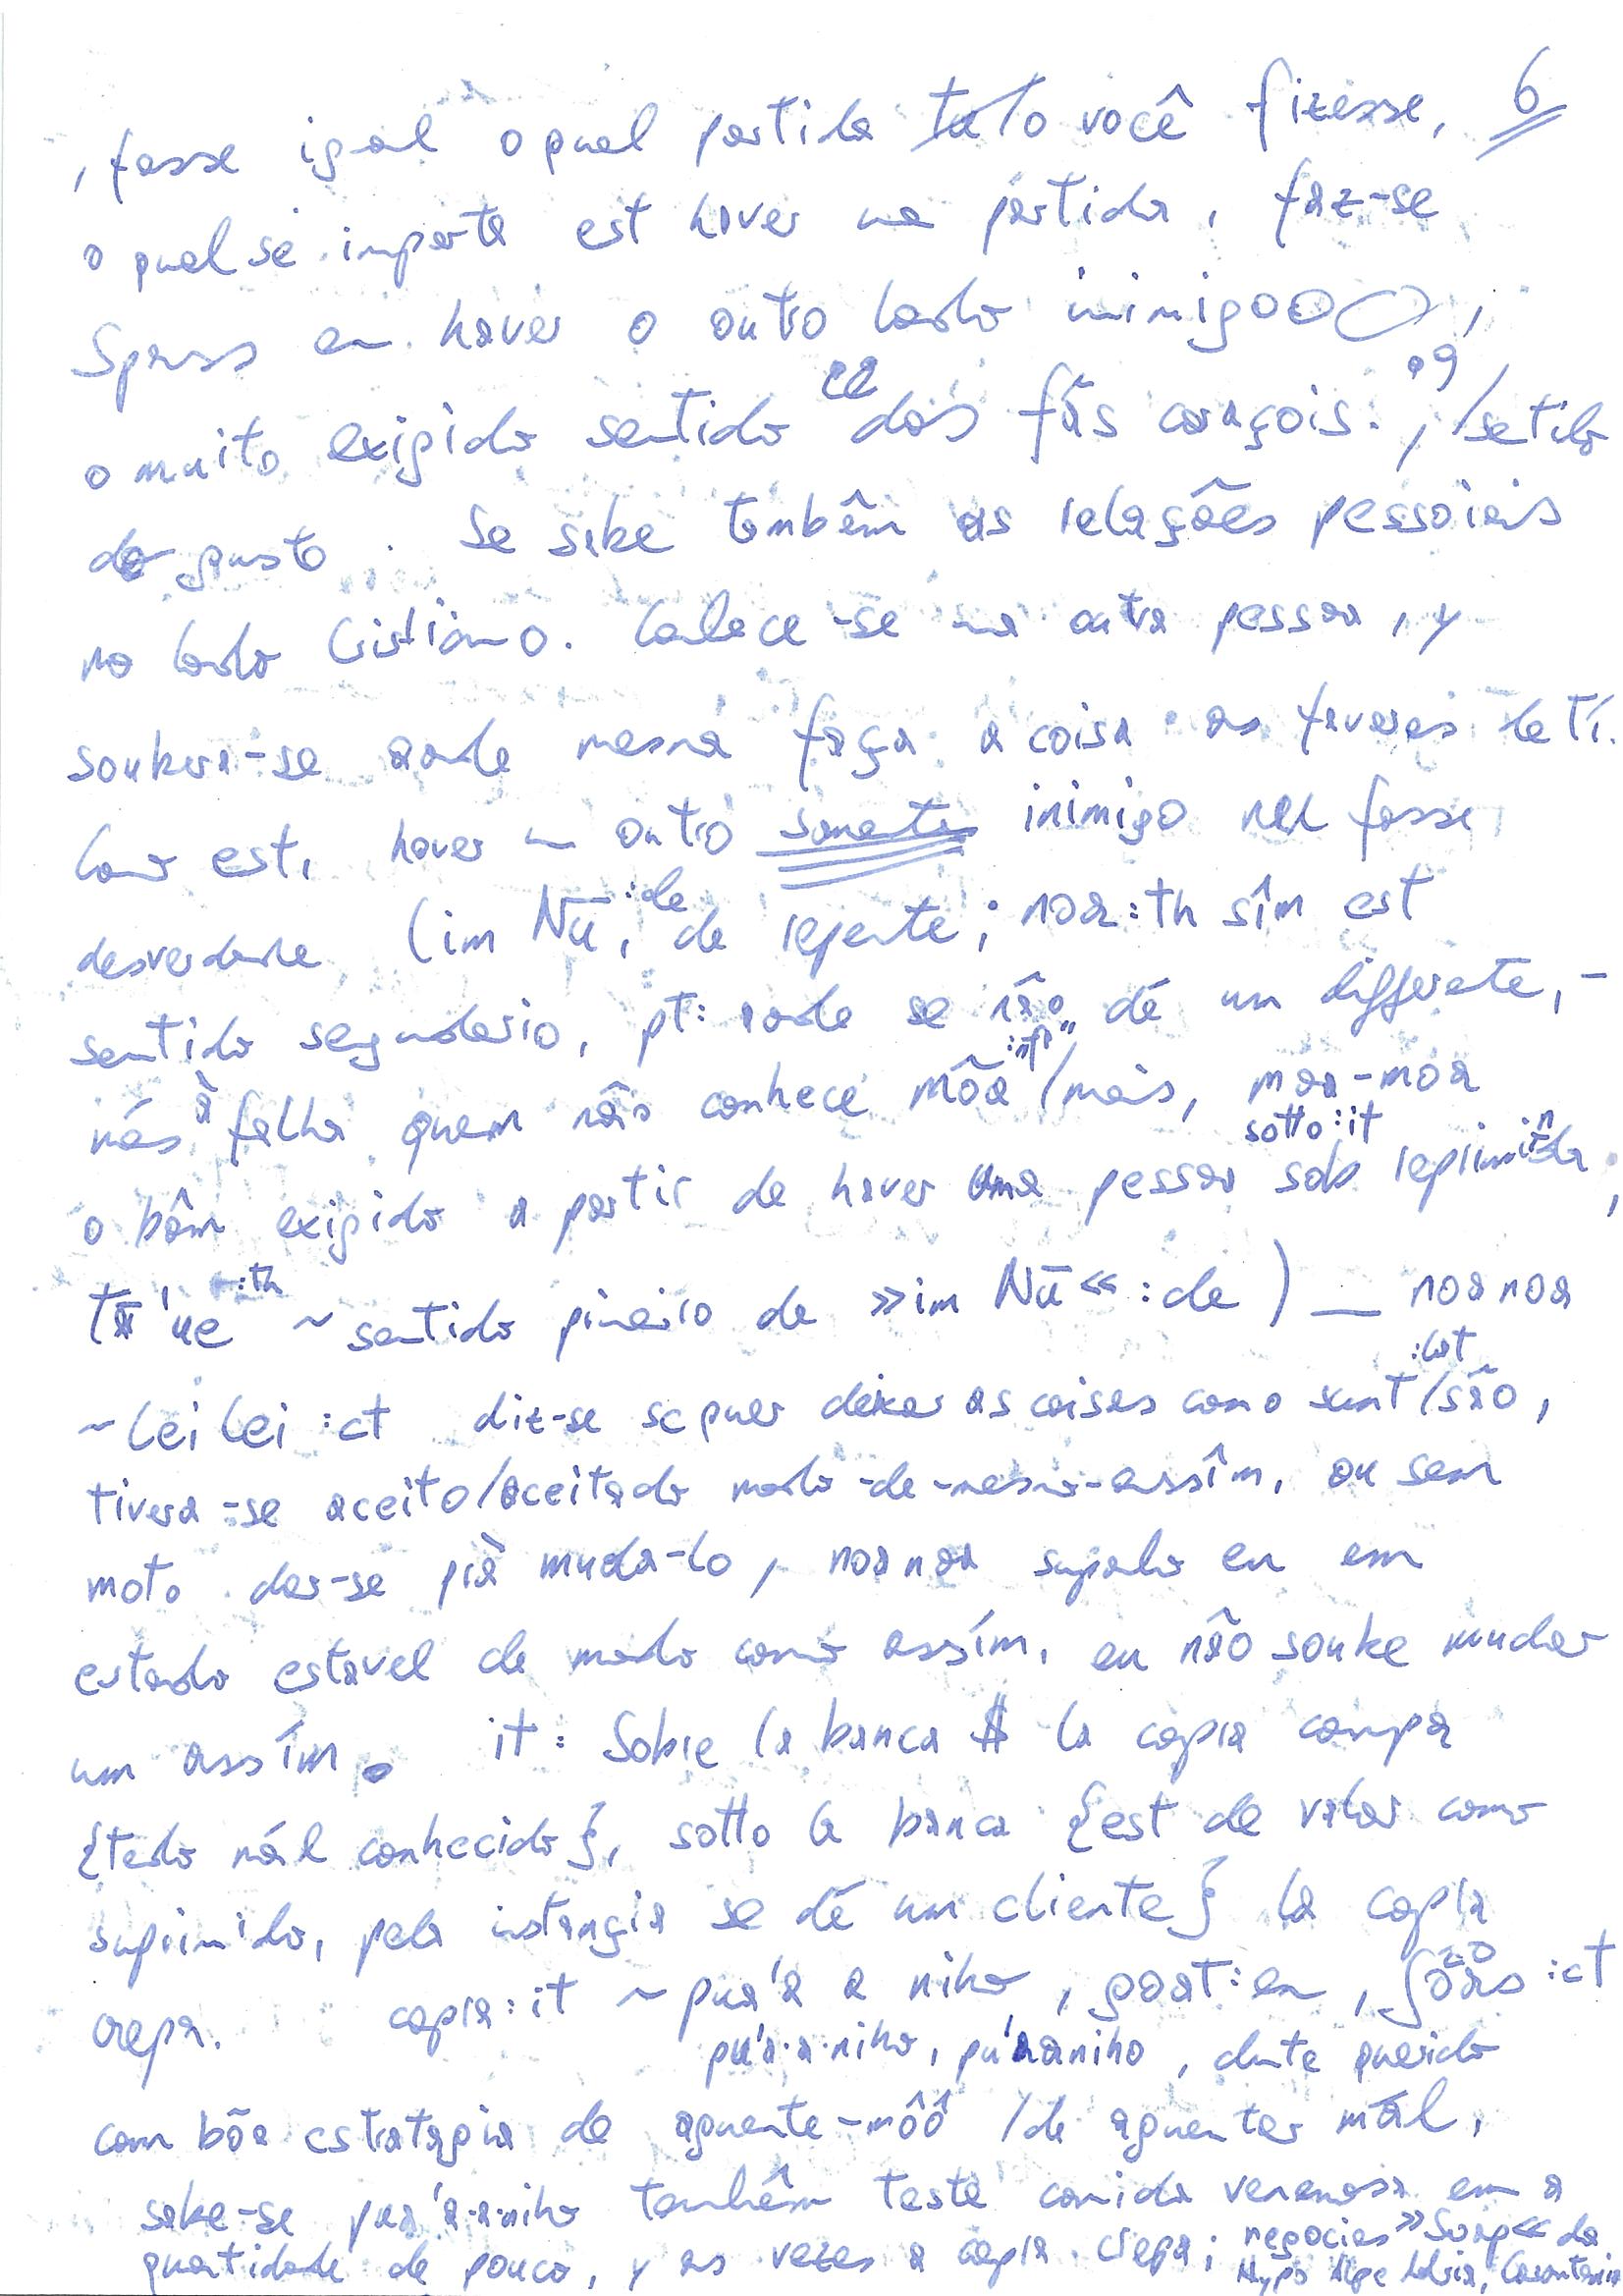 , fosse igual o qual partida você fizesse, 6
o qual se importa est haver na partida, faz-se
Spass en haver o outro lado inimigooo,
o muito exigido sentido dos fãs coraçois. ,/setido
do gusto. Se sabe também as relações pessoiais
no lado Cristiãno. Conhece-se una outra pessoa, y
soubera-se aonde mesma faça a coisa as favores de tí.
Com est, haver un outro somente inimigo nel fosse
desverdade (im Nū :de, de repente; noa:th sîm est
sentido segundario, pt: aonde se não dé un differente,-
nés à falha quem não conhece mõa /mais, moa-moa
sotto:it
o bôm exigido a partir de haver uma pessoa sob reprimida,
tā'ue :th ~ sentido pineiro de »im Nū« :de ) — noa noa
:lat
~ lei lei :ct diz-se se quer deixar as coisas como sunt/são,
tivera-se aceito/aceitado modo-de-mesmo-assîm, ou sem
moto dar-se prà muda-lo, noa noa supondo eu em
estado estavel de modo como assím, eu não soube mudar
um assím. it: Sobre la banca $ la capra campa
{tedo mál conhecido}, sotto la banca {est de valor como
suprimido, pela instançia se dé um cliente} la capra
crepa. capra:it ~ pua'a a niho, goat:en, :ct
pua'a·a·niho, pú'aaniho, dente querido
com bõa estrategia de aguente-môô /de aguentar mál,
sabe-se pua'a·a·niho também testé comida venenosa em a
quantidade de pouco, y as vezes a capra crepa; negocios »Swap« da
Hypo Alpe Adria, Carantania